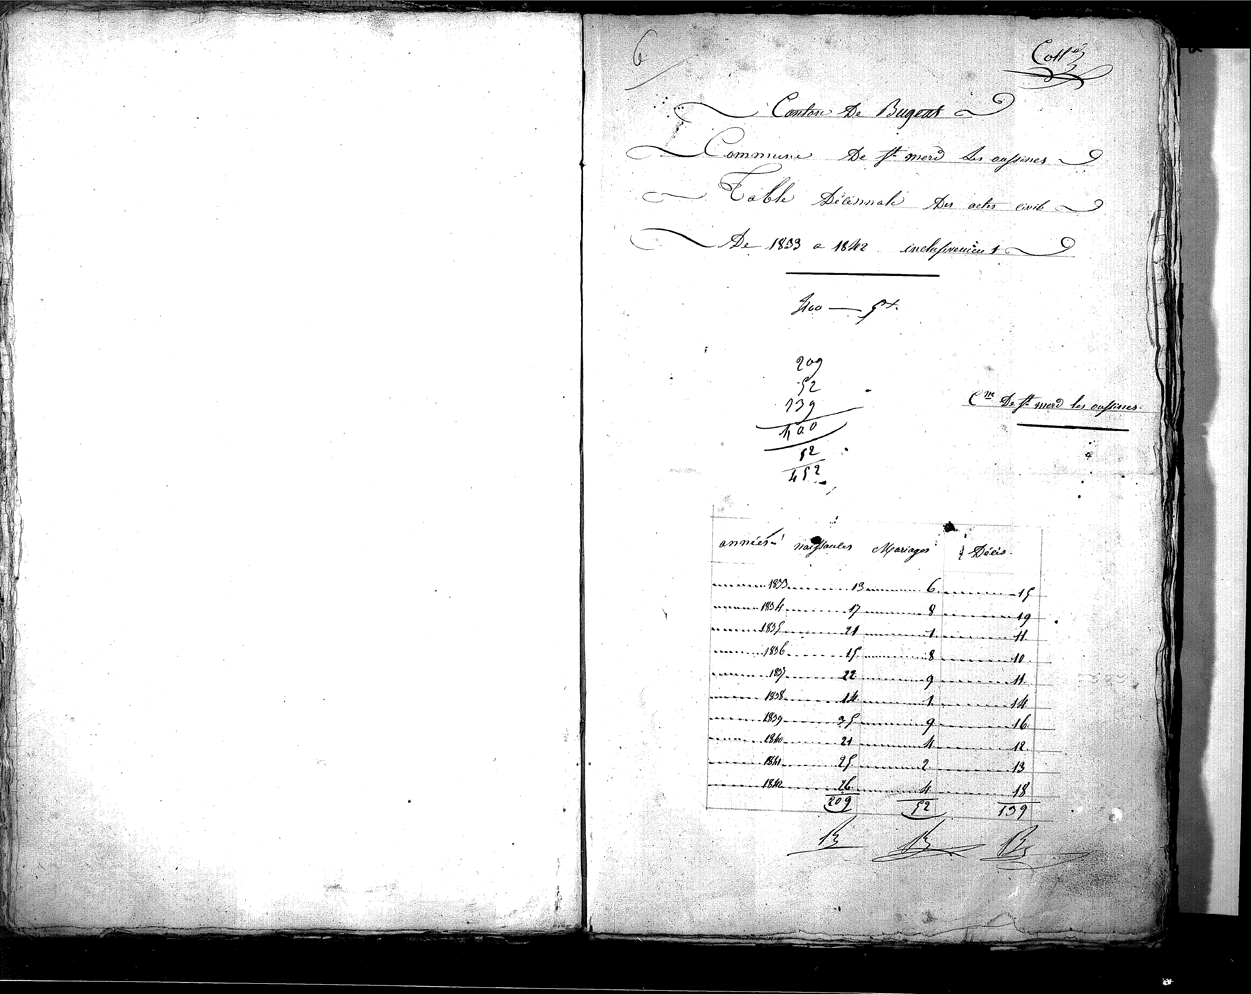 6
Canton De Bugeat
Commune De St merd Les oussines
Table Décennale Des actes civils
De 1833 a 1842 inclusivement
400
209
52
139
400
52
452
Cne De St merd les oussines.
années naissances Mariages Décès.
1833 13 6 15
1834 17 8 19
1835 21 1 11
1836 15 8 10
1837 22 9 11
1838 14 1 14
1839 35 9 16
1840 21 4 12
1841 25 2 13
1842 26 4 18
209 52 139